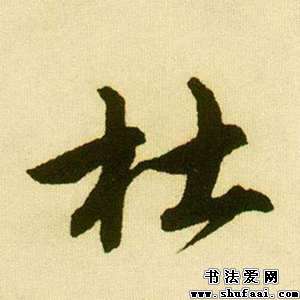 杜
书法爱网
www.shufaai.com